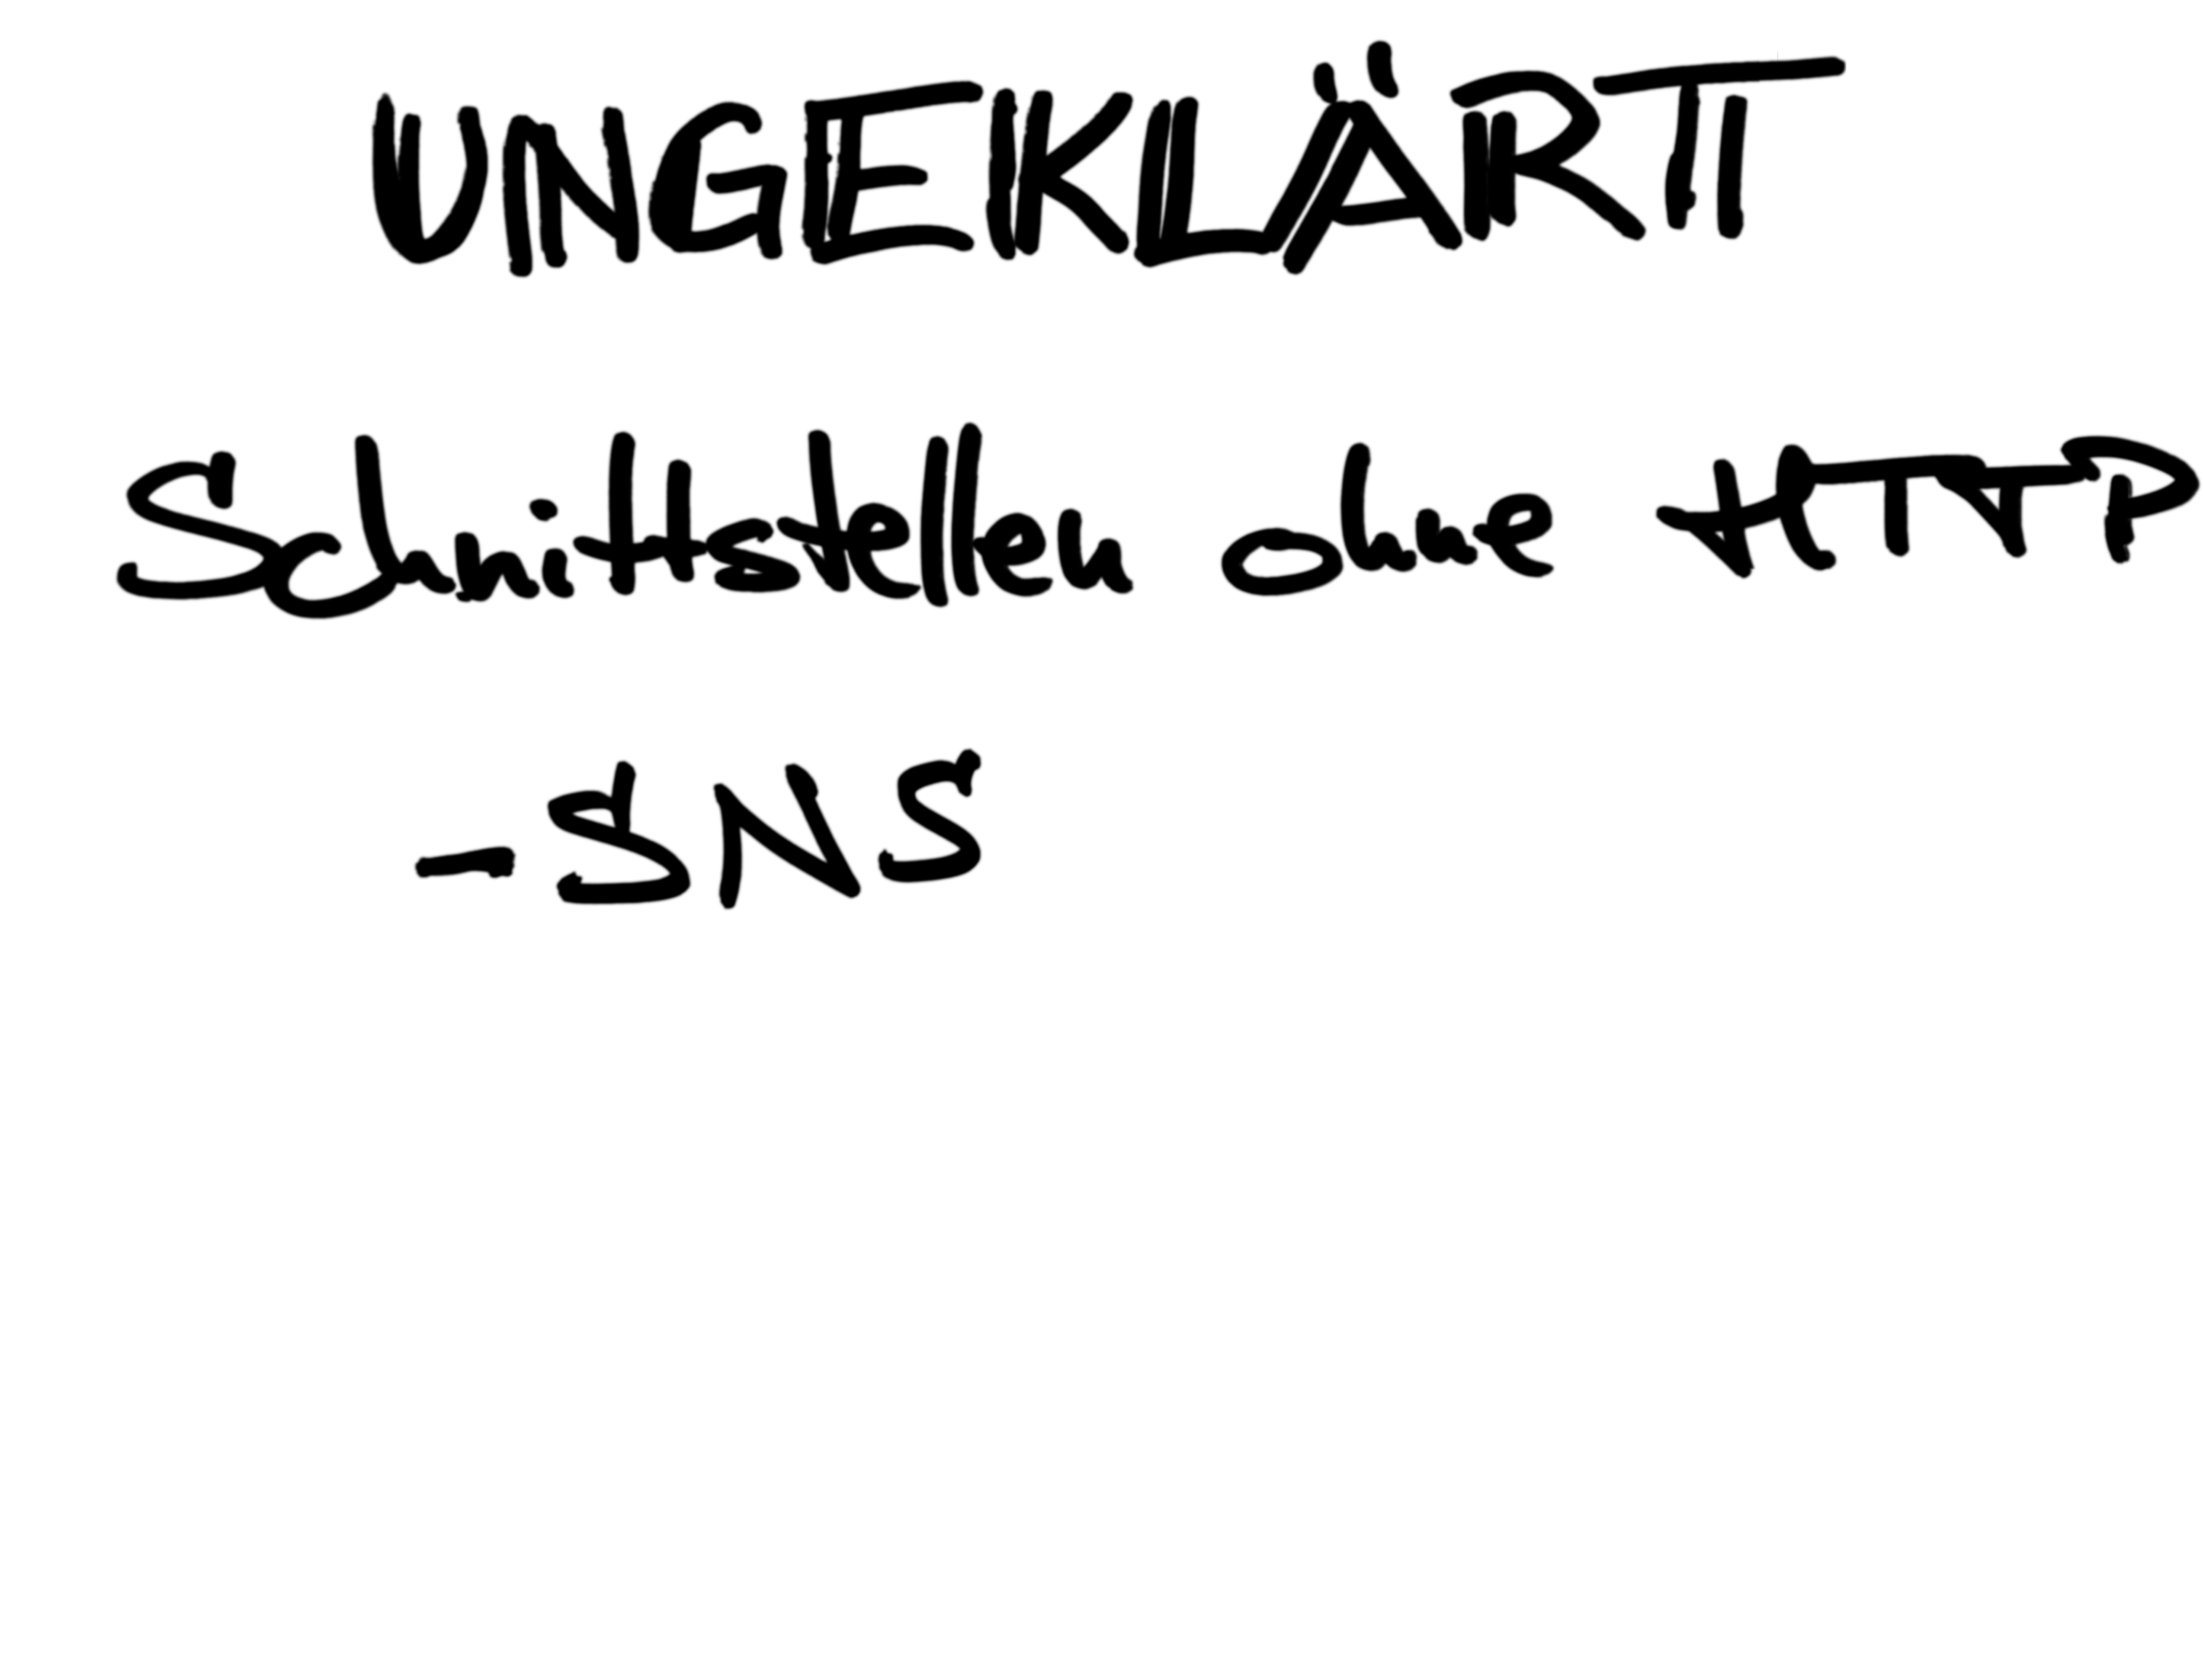 UNGEKLÄRT
Schnittstellen ohne HTTP
- SNS